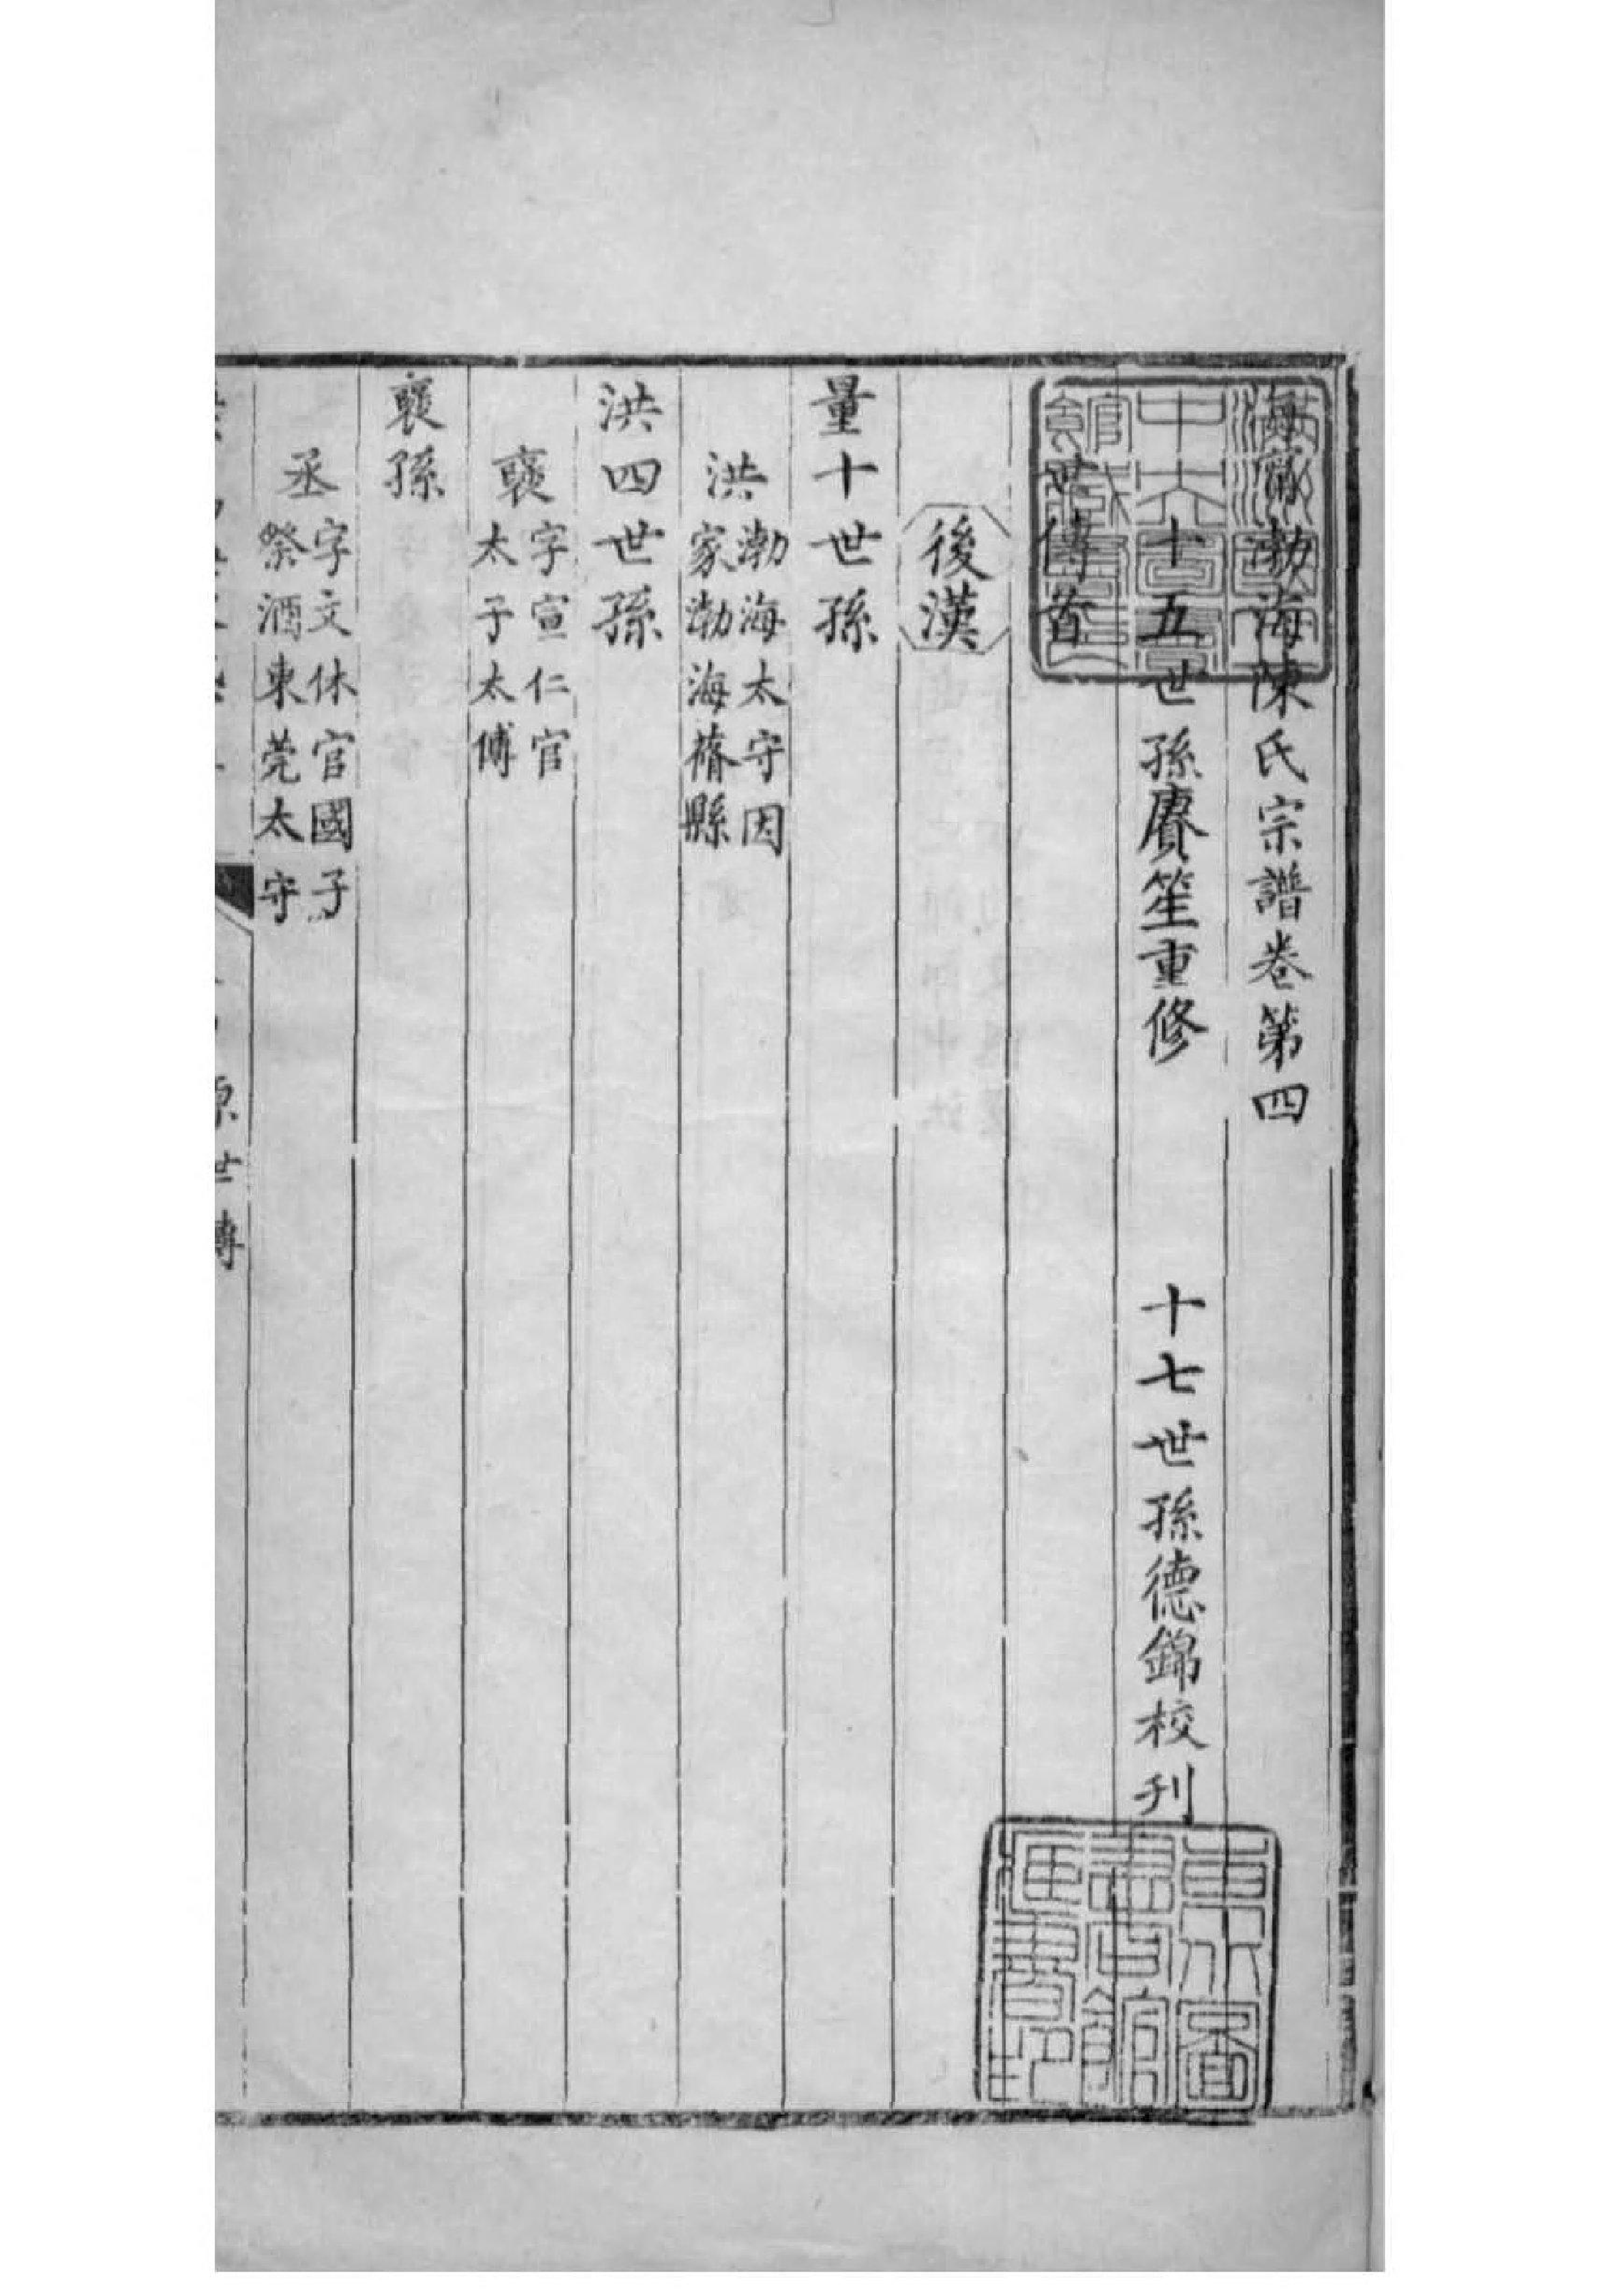 海寧渤海陳氏宗譜卷第四
十五世孫賡笙重修　十七世孫德錦校刊
世傳首
後漢
量十世孫
洪 渤海太守因
家渤海蓨縣
洪四世孫
襃 字宣仁官
太子太傅
襃孫
丞 字文休官國子
祭酒東莞太守
源世傳
東北圖
書館